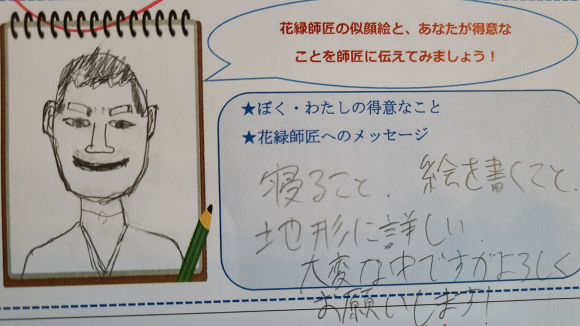 花緑師匠の似顔絵と、あなたが得意な
ことを師匠に伝えてみましょう！
★ぼく・わたしの得意なこと
★花緑師匠へのメッセージ
寝ること、絵を書くこと、
地形に詳しい
大変な中ですがよろしく
お願いします！